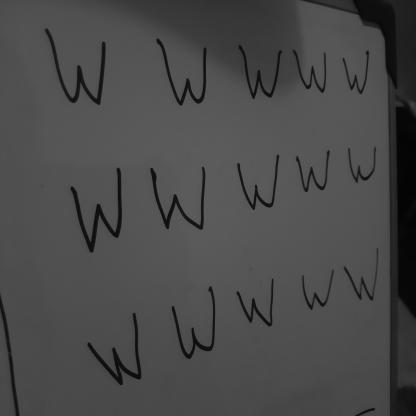 W W W W W
W W W W W
W W W W W